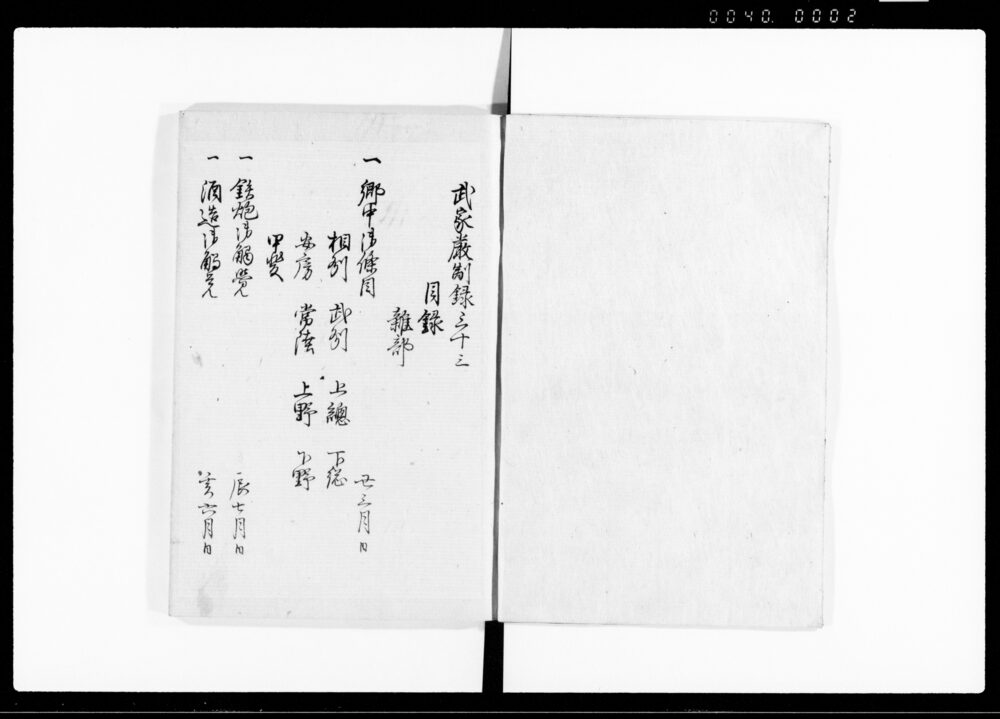 0040. 0002
武家嚴制録三十三
目録
雜部
一 郷中御條目 丑三月日
相州 武州 上總 下總
安房 常陸 上野 下野
甲斐
一 鉄炮御觸覺 辰七月日
一 酒造御觸覚 亥六月日